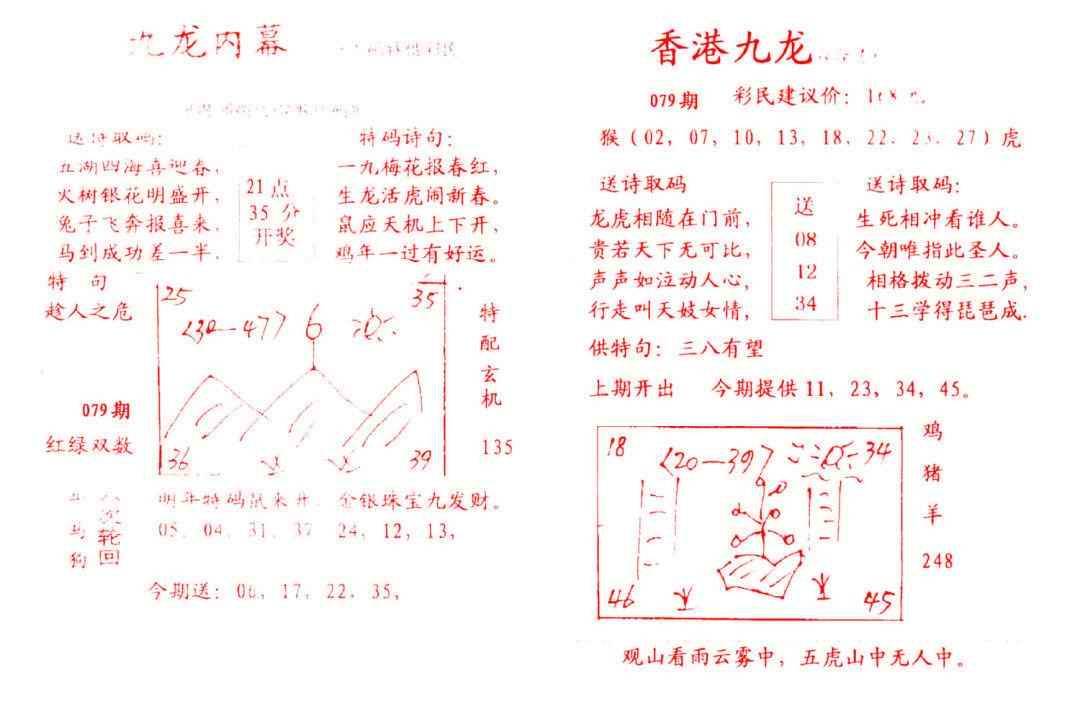 九龙内幕
送诗取码:
五湖四海喜迎春,
火树银花明盛开,
兔子飞奔报喜来,
马到成功差一半.
21点
35分
开奖
特码诗句:
一九梅花报春红,
生龙活虎闹新春。
鼠应天机上下开,
鸡年一过有好运。
特 句
趁人之危
079期
红绿双数
25
35
230—477 6
36
39
特
配
玄
机
135
明年特码鼠来开, 金银珠宝九发财。
马 05, 04, 31, 37 24, 12, 13,
狗
轮
回
今期送: 06, 17, 22, 35,
香港九龙
079期 彩民建议价:
猴(02, 07, 10, 13, 18, 22, 23, 27)虎
送诗取码
龙虎相随在门前,
贵若天下无可比,
声声如泣动人心,
行走叫天妓女情,
送
08
12
34
送诗取码:
生死相冲看谁人。
今朝唯指此圣人。
相格拨动三二声,
十三学得琵琶成.
供特句: 三八有望
上期开出 今期提供11, 23, 34, 45。
18
34
46
45
鸡
猪
羊
248
观山看雨云雾中, 五虎山中无人中。